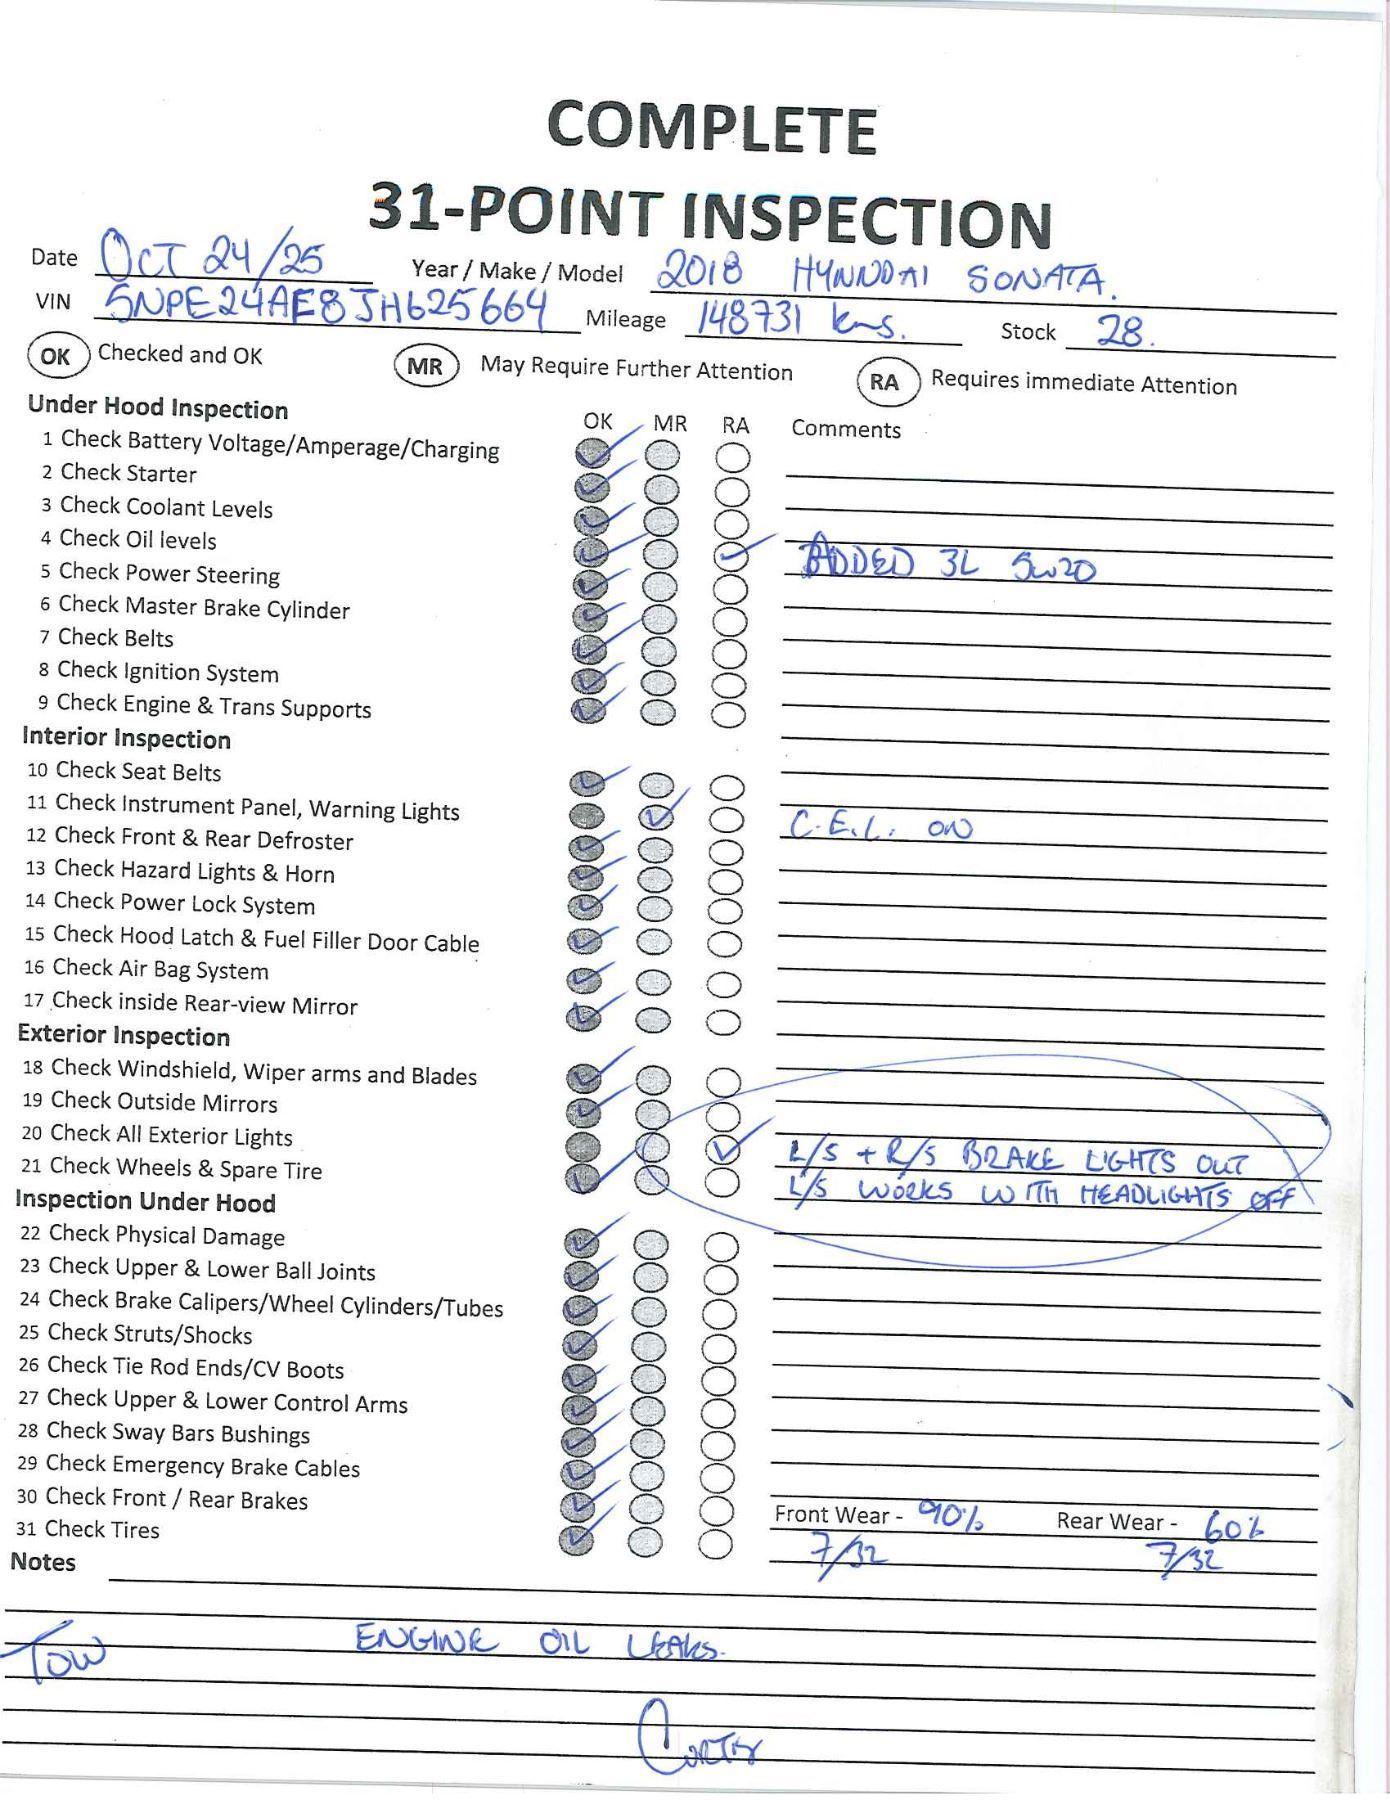 COMPLETE
31-POINT INSPECTION
Date OCT 24/25 Year / Make / Model 2018 HYNNDAI SONATA.
VIN 5NPE24AE8JH625664 Mileage 148731 kms. Stock 28.
OK Checked and OK MR May Require Further Attention RA Requires immediate Attention
Under Hood Inspection OK MR RA Comments
1 Check Battery Voltage/Amperage/Charging
2 Check Starter
3 Check Coolant Levels
4 Check Oil levels ADDED 3L 5w20
5 Check Power Steering
6 Check Master Brake Cylinder
7 Check Belts
8 Check Ignition System
9 Check Engine & Trans Supports
Interior Inspection
10 Check Seat Belts
11 Check Instrument Panel, Warning Lights C.E.L. ON
12 Check Front & Rear Defroster
13 Check Hazard Lights & Horn
14 Check Power Lock System
15 Check Hood Latch & Fuel Filler Door Cable
16 Check Air Bag System
17 Check inside Rear-view Mirror
Exterior Inspection
18 Check Windshield, Wiper arms and Blades
19 Check Outside Mirrors
20 Check All Exterior Lights L/S + R/S BRAKE LIGHTS OUT
21 Check Wheels & Spare Tire L/S WORKS WITH HEADLIGHTS OFF
Inspection Under Hood
22 Check Physical Damage
23 Check Upper & Lower Ball Joints
24 Check Brake Calipers/Wheel Cylinders/Tubes
25 Check Struts/Shocks
26 Check Tie Rod Ends/CV Boots
27 Check Upper & Lower Control Arms
28 Check Sway Bars Bushings
29 Check Emergency Brake Cables
30 Check Front / Rear Brakes Front Wear - 90% Rear Wear - 60%
31 Check Tires 7/32 7/32
Notes
TOW ENGINE OIL LEAKS.